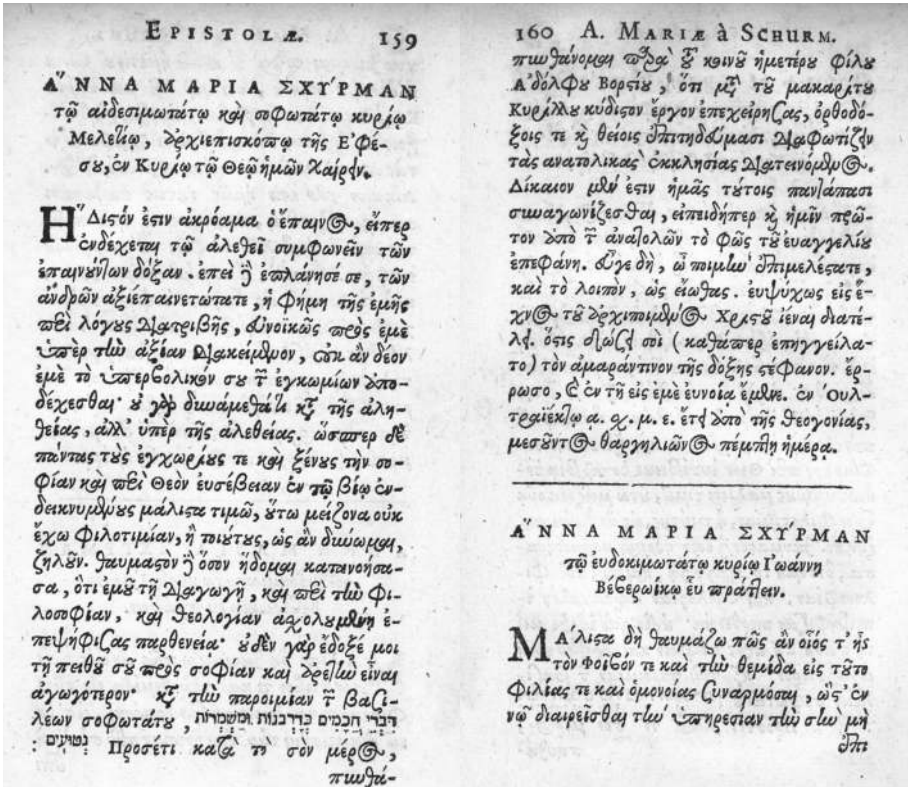 EPISTOLÆ. 159
ἌΝΝΑ ΜΑΡΙΑ ΣΧΎΡΜΑΝ
τῷ αἰδεσιμωτάτῳ καὶ σοφωτάτῳ κυρίῳ
Μελετίῳ, ἀρχιεπισκόπῳ τῆς Ἐφέ-
σου, ἐν Κυρίῳ τῷ Θεῷ ἡμῶν Χαίρειν.
ἭΔιςόν ἐςιν ἀκρόαμα ὁ ἔπαινος, εἴπερ
ἐνδέχεται τῷ ἀλεθεῖ συμφωνεῖν τῶν
ἐπαινούντων δόξαν. ἐπεὶ ἢ ἐπλάνησέ σε, τῶν
ἀνδρῶν ἀξιέπαινετώτατε, ἡ φήμη τῆς ἐμῆς
περὶ λόγους διατριβῆς, εὐνοϊκῶς πρὸς ἐμὲ
ὑπὲρ τὴν ἀξίαν διακείμενον, οὐκ ἂν δέον
ἐμὲ τὸ ὑπερβολικόν σου τῶν ἐγκωμίων ἀπο-
δέχεσθαι· οὐ γὰρ δυνάμεθά τι κατὰ τῆς ἀλη-
θείας, ἀλλ' ὑπὲρ τῆς ἀλεθείας. ὥσπερ δὲ
πάντας τοὺς ἐγχωρίους τε καὶ ξένους τὴν σο-
φίαν καὶ περὶ Θεὸν ευσέβειαν ἐν τῷ βίῳ ἐν-
δεικνυμένους μάλιςα τιμῶ, οὕτω μείζονα ουκ
ἔχω φιλοτιμίαν, ἢ τοιούτους, ὡς ἂν δύνωμαι,
ζηλοῦν. θαυμαςὸν ἢ ὅσον ἥδομαι κατανοήσα-
σα, ὅτι ἐμοῦ τῇ διαγωγῇ, καὶ περὶ τὴν φι-
λοσοφίαν, καὶ θεολογίαν ἀχολουμένῃ ἐ-
πεψήφιζας παρθενεία· οὐδὲν γὰρ ἔδοξέ μοι
τῇ πειθοῦ σοῦ πρὸς σοφίαν καὶ ἀρετὴν εἶναι
ἀγωγότερον· κατὰ τὴν παροιμίαν τοῦ βαζι-
λέων σοφωτάτου, דִּבְרֵי חֲכָמִים כַּדָּרְבֹנוֹת וּמַשְׂמְרוֹת
נְטוּעִים : Προσέτι κατά τι σὸν μέρος,
πυνθά-
160 A. MARIÆ à SCHURM.
πυνθάνομαι παρὰ τοῦ κοινοῦ ἡμετέρου φίλου
Ἀδόλφου Βορςίου, ὅτι μετὰ τοῦ μακαρίτου
Κυρίλλου κύδιςον ἔργον ἐπεχείρηζας, ὀρθοδό-
ξοις τε καὶ θείοις ἐπιτηδεύμασι διαφωτίζειν
τὰς ἀνατολικὰς ἐκκλησίας διατεινόμενος.
Δίκαιον μὲν ἐςιν ἡμᾶς τούτοις παντάπασι
συναγωνίζεσθαι, ἐπειδήπερ καὶ ἡμῖν πρῶ-
τον ἀπὸ τῶν ἀνατολῶν τὸ φῶς τοῦ ευαγγελίου
ἐπεφάνη. εὖγε δὴ, ὦ ποιμὴν ἐπιμελέςατε,
καὶ τὸ λοιπὸν, ὡς εἴωθας. ευψύχως εἰς ἔ-
χνος τοῦ ἀρχιποιμένος Χριςοῦ ἰέναι διατέ-
λει. ὅςις δώζει σοὶ ( καθάπερ ἐπηγγείλα-
το) τὸν ἀμαράντινον τῆς δόξης ςέφανον. ἔρ-
ρωσο, καὶ ἐν τῇ εἰς ἐμὲ ευνοίᾳ ἔμενε. ἐν Οὐλ-
τραϊέκτῳ α. χ. μ. ε. ἔτει ἀπὸ τῆς θεογονίας,
μεσοῦντος θαργηλιῶνος πέμπτῃ ἡμέρᾳ.
ἌΝΝΑ ΜΑΡΙΑ ΣΧΎΡΜΑΝ
τῷ ἐυδοκιμωτάτῳ κυρίῳ Ἰωάννῃ
Βέβερωίκῳ εὖ πράττειν.
ΜΆλιςα δὴ θαυμάζω πῶς ἂν οἷός τ' ἧς
τὸν Φοῖβόν τε καὶ τὴν θεμίδα εἰς τοῦτο
φιλίας τε καὶ ὁμονοίας ζυναρμόσαι, ὥς' ἐν
νῷ διαιρεῖσθαι τὴν ὑπηρεσίαν τὴν σὴν μὴ
ἐπι